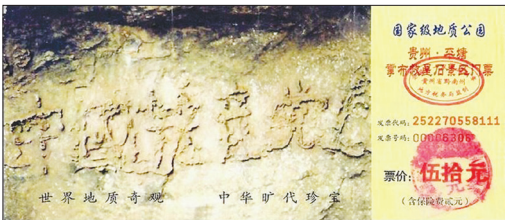 中國共产党亡
世界地质奇观 中华旷代珍宝
国家级地质公园
贵州·平塘
掌布藏字石景区门票
贵州省黔南州
发票代码:252270558111
发票号码:00006306
票价:伍拾元
(含保险费贰元)